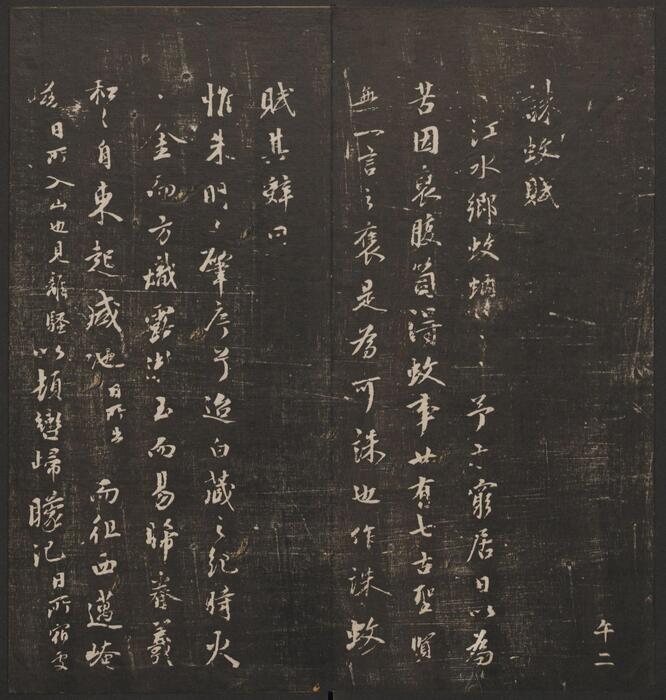 誅蚊賦
江水鄉蚊蚋予窮居日以為
苦因裒腹笥得蚊事廿有七古聖賢
無一言之褒是為可誅也作誅蚊
賦其辭曰
惟朱明之肇序兮迨白藏之紀時火
金而方熾露漙玉而易晞眷羲
和之自東起咸池日所出而徂西邁崦
嵫日所入山也見離騷以頓轡歸矇汜日所
午二